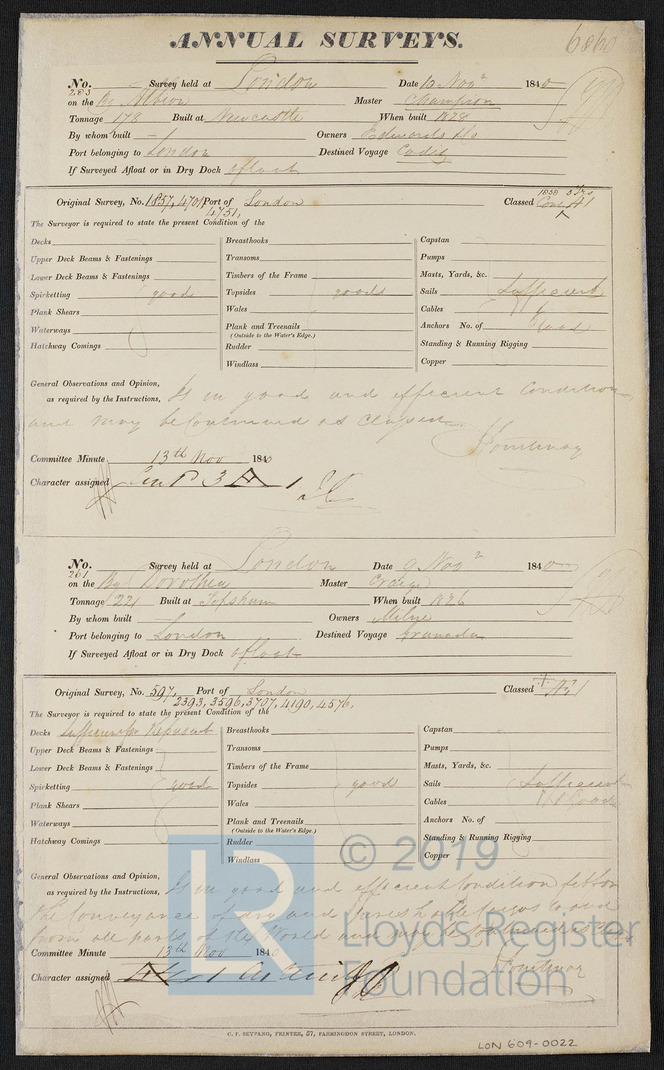 6860
ANNUAL SURVEYS.
No. 283 Survey held at London Date 10 Novr 1840
on the Bg Albion Master Champion
Tonnage 178 Built at Newcastle When built 1828
By whom built Owners Edwards & Co
Port belonging to London Destined Voyage Cadiz
If Surveyed Afloat or in Dry Dock afloat
Original Survey, No. 1857, 4701 Port of London Classed 1838 3 Yrs Con A1
4751,
The Surveyor is required to state the present Condition of the
Decks Breasthooks Capstan
Upper Deck Beams & Fastenings Transoms Pumps
Lower Deck Beams & Fastenings Timbers of the Frame Masts, Yards, &c.
Spirketting good Topsides good Sails Sufficient
Plank Shears Wales Cables
Waterways Plank and Treenails Anchors No. of Good
(Outside to the Water's Edge.)
Hatchway Comings Rudder Standing & Running Rigging
Windlass Copper
General Observations and Opinion, Is in good and efficient Condition
as required by the Instructions,
and may be Continued as Classed
Committee Minute 13th Nov 1840
Character assigned
No. 261 Survey held at London Date 9 Novr 1840
on the Bg Dorothea Master Craigie
Tonnage 221 Built at Topsham When built 1826
By whom built Owners Milne
Port belonging to London Destined Voyage Grenada
If Surveyed Afloat or in Dry Dock afloat
Original Survey, No. 597, Port of London Classed
2393, 3596, 3707, 4190, 4576,
The Surveyor is required to state the present Condition of the
Decks Breasthooks Capstan
Upper Deck Beams & Fastenings Transoms Pumps
Lower Deck Beams & Fastenings Timbers of the Frame Masts, Yards, &c.
Spirketting good Topsides good Sails Sufficient
Plank Shears Wales Cables & Good
Waterways Plank and Treenails Anchors No. of
(Outside to the Water's Edge.)
Hatchway Comings Rudder Standing & Running Rigging
Windlass Copper
General Observations and Opinion, Is in good and efficient Condition fit for
as required by the Instructions,
the Conveyance of dry and Perishable Cargos to and
from all parts of the World and may be Continued as
Committee Minute 13th Nov 1840
Character assigned
LR
© 2019
Lloyd's Register
Foundation
C. F. SEYFANG, PRINTER, 57, FARRINGDON STREET, LONDON.
LON 609-0022